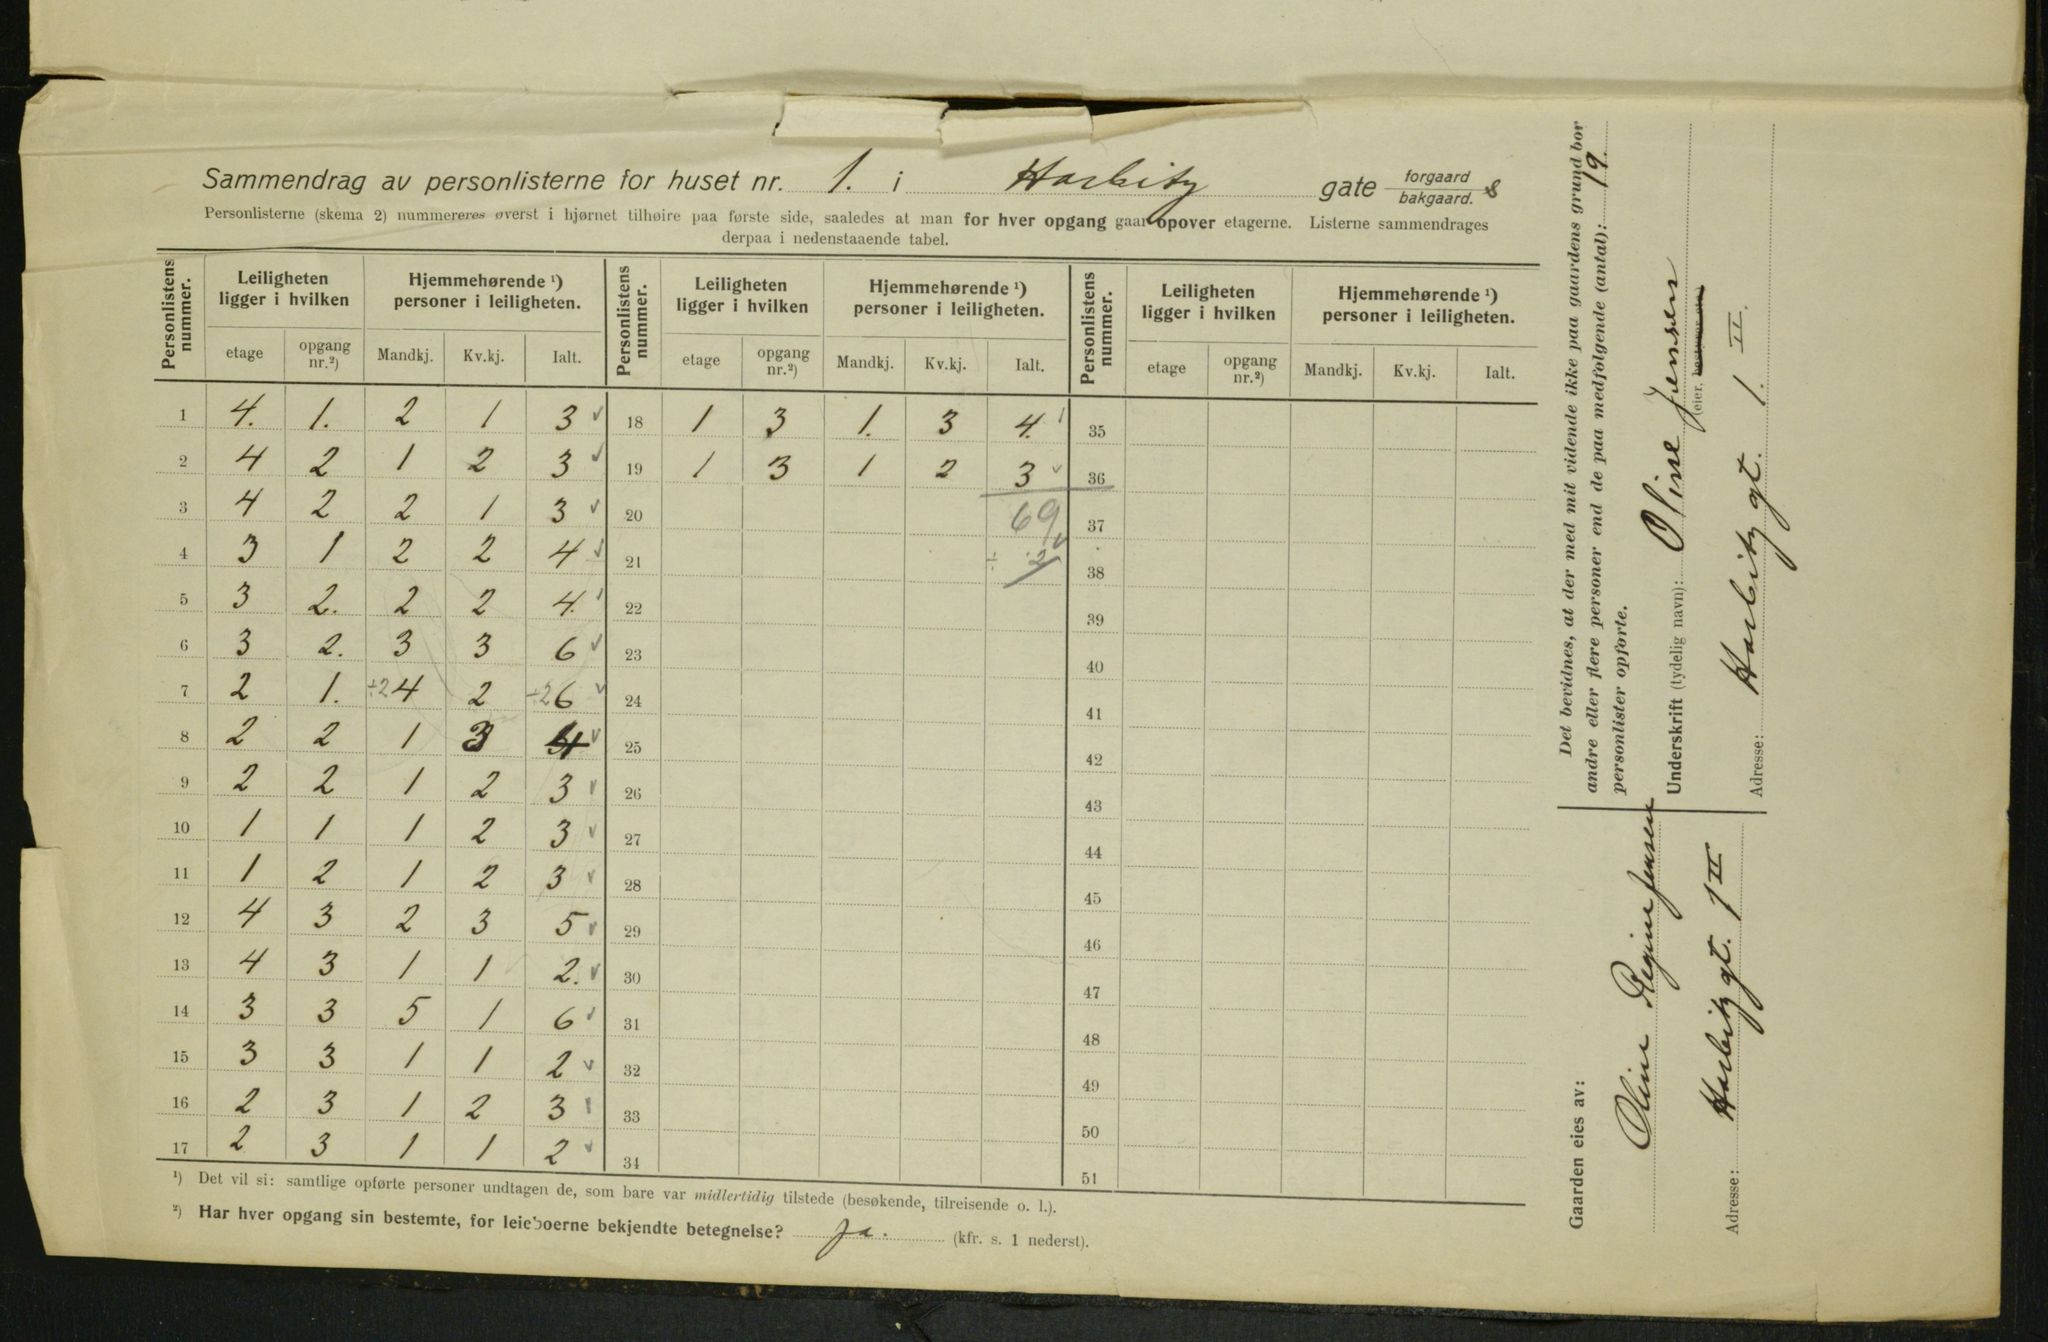 Sammendrag av personlisterne for huset nr. 1. i Harbitz gate forgaard bakgaard. s
Personlisterne (skema 2) nummereres øverst i hjørnet tilhøire paa første side, saaledes at man for hver opgang gaar opover etagerne. Listerne sammendrages
derpaa i nedenstaaende tabel.
Personlistens nummer. Leiligheten ligger i hvilken Hjemmehørende ¹) personer i leiligheten. Personlistens nummer. Leiligheten ligger i hvilken Hjemmehørende ¹) personer i leiligheten. Personlistens nummer. Leiligheten ligger i hvilken Hjemmehørende ¹) personer i leiligheten.
etage opgang nr.²) Mandkj. Kv.kj. Ialt. etage opgang nr.²) Mandkj. Kv.kj. Ialt. etage opgang nr.²) Mandkj. Kv.kj. Ialt.
1 4. 1. 2 1 3 18 1 3 1. 3 4. 35
2 4 2 1 2 3 19 1 3 1 2 3 36
3 4 2 2 1 3 20 69 37
4 3 1 2 2 4 21 ÷ 2 38
5 3 2. 2 2 4. 22 39
6 3 2. 3 3 6 23 40
7 2 1. ÷2 4 2 ÷2 6 24 41
8 2 2 1 3 4 25 42
9 2 2 1 2 3 26 43
10 1 1 1 2 3 27 44
11 1 2 1 2 3 28 45
12 4 3 2 3 5 29 46
13 4 3 1 1 2. 30 47
14 3 3 5 1 6 31 48
15 3 3 1 1 2 32 49
16 2 3 1 2 3 33 50
17 2 3 1 1 2 34 51
¹) Det vil si: samtlige opførte personer undtagen de, som bare var midlertidig tilstede (besøkende, tilreisende o. l.).
²) Har hver opgang sin bestemte, for leieboerne bekjendte betegnelse? ja. (kfr. s. 1 nederst).
Det bevidnes, at der med mit vidende ikke paa gaardens grund bor
andre eller flere personer end de paa medfølgende (antal): 19.
personlister opførte.
Underskrift (tydelig navn): Oline Jensen
(eier,
Adresse: Harbitz gt. 1. II.
Gaarden eies av:
Oline Regine Jensen
Adresse: Harbitz gt. 1 II